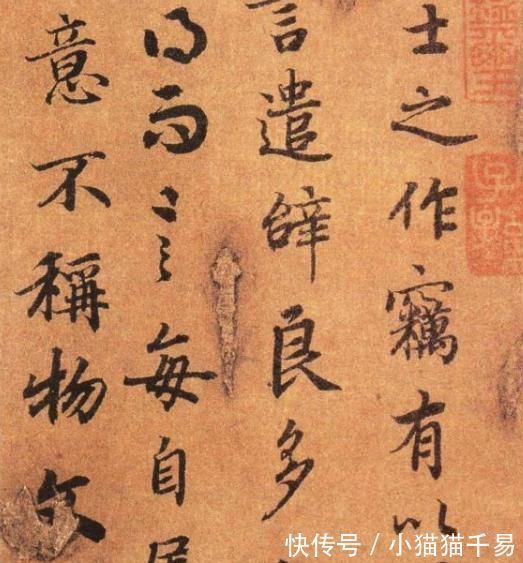 士之作竊有以
言遣辝良多
得而言之每自
意不稱物文
快传号/小猫猫千易